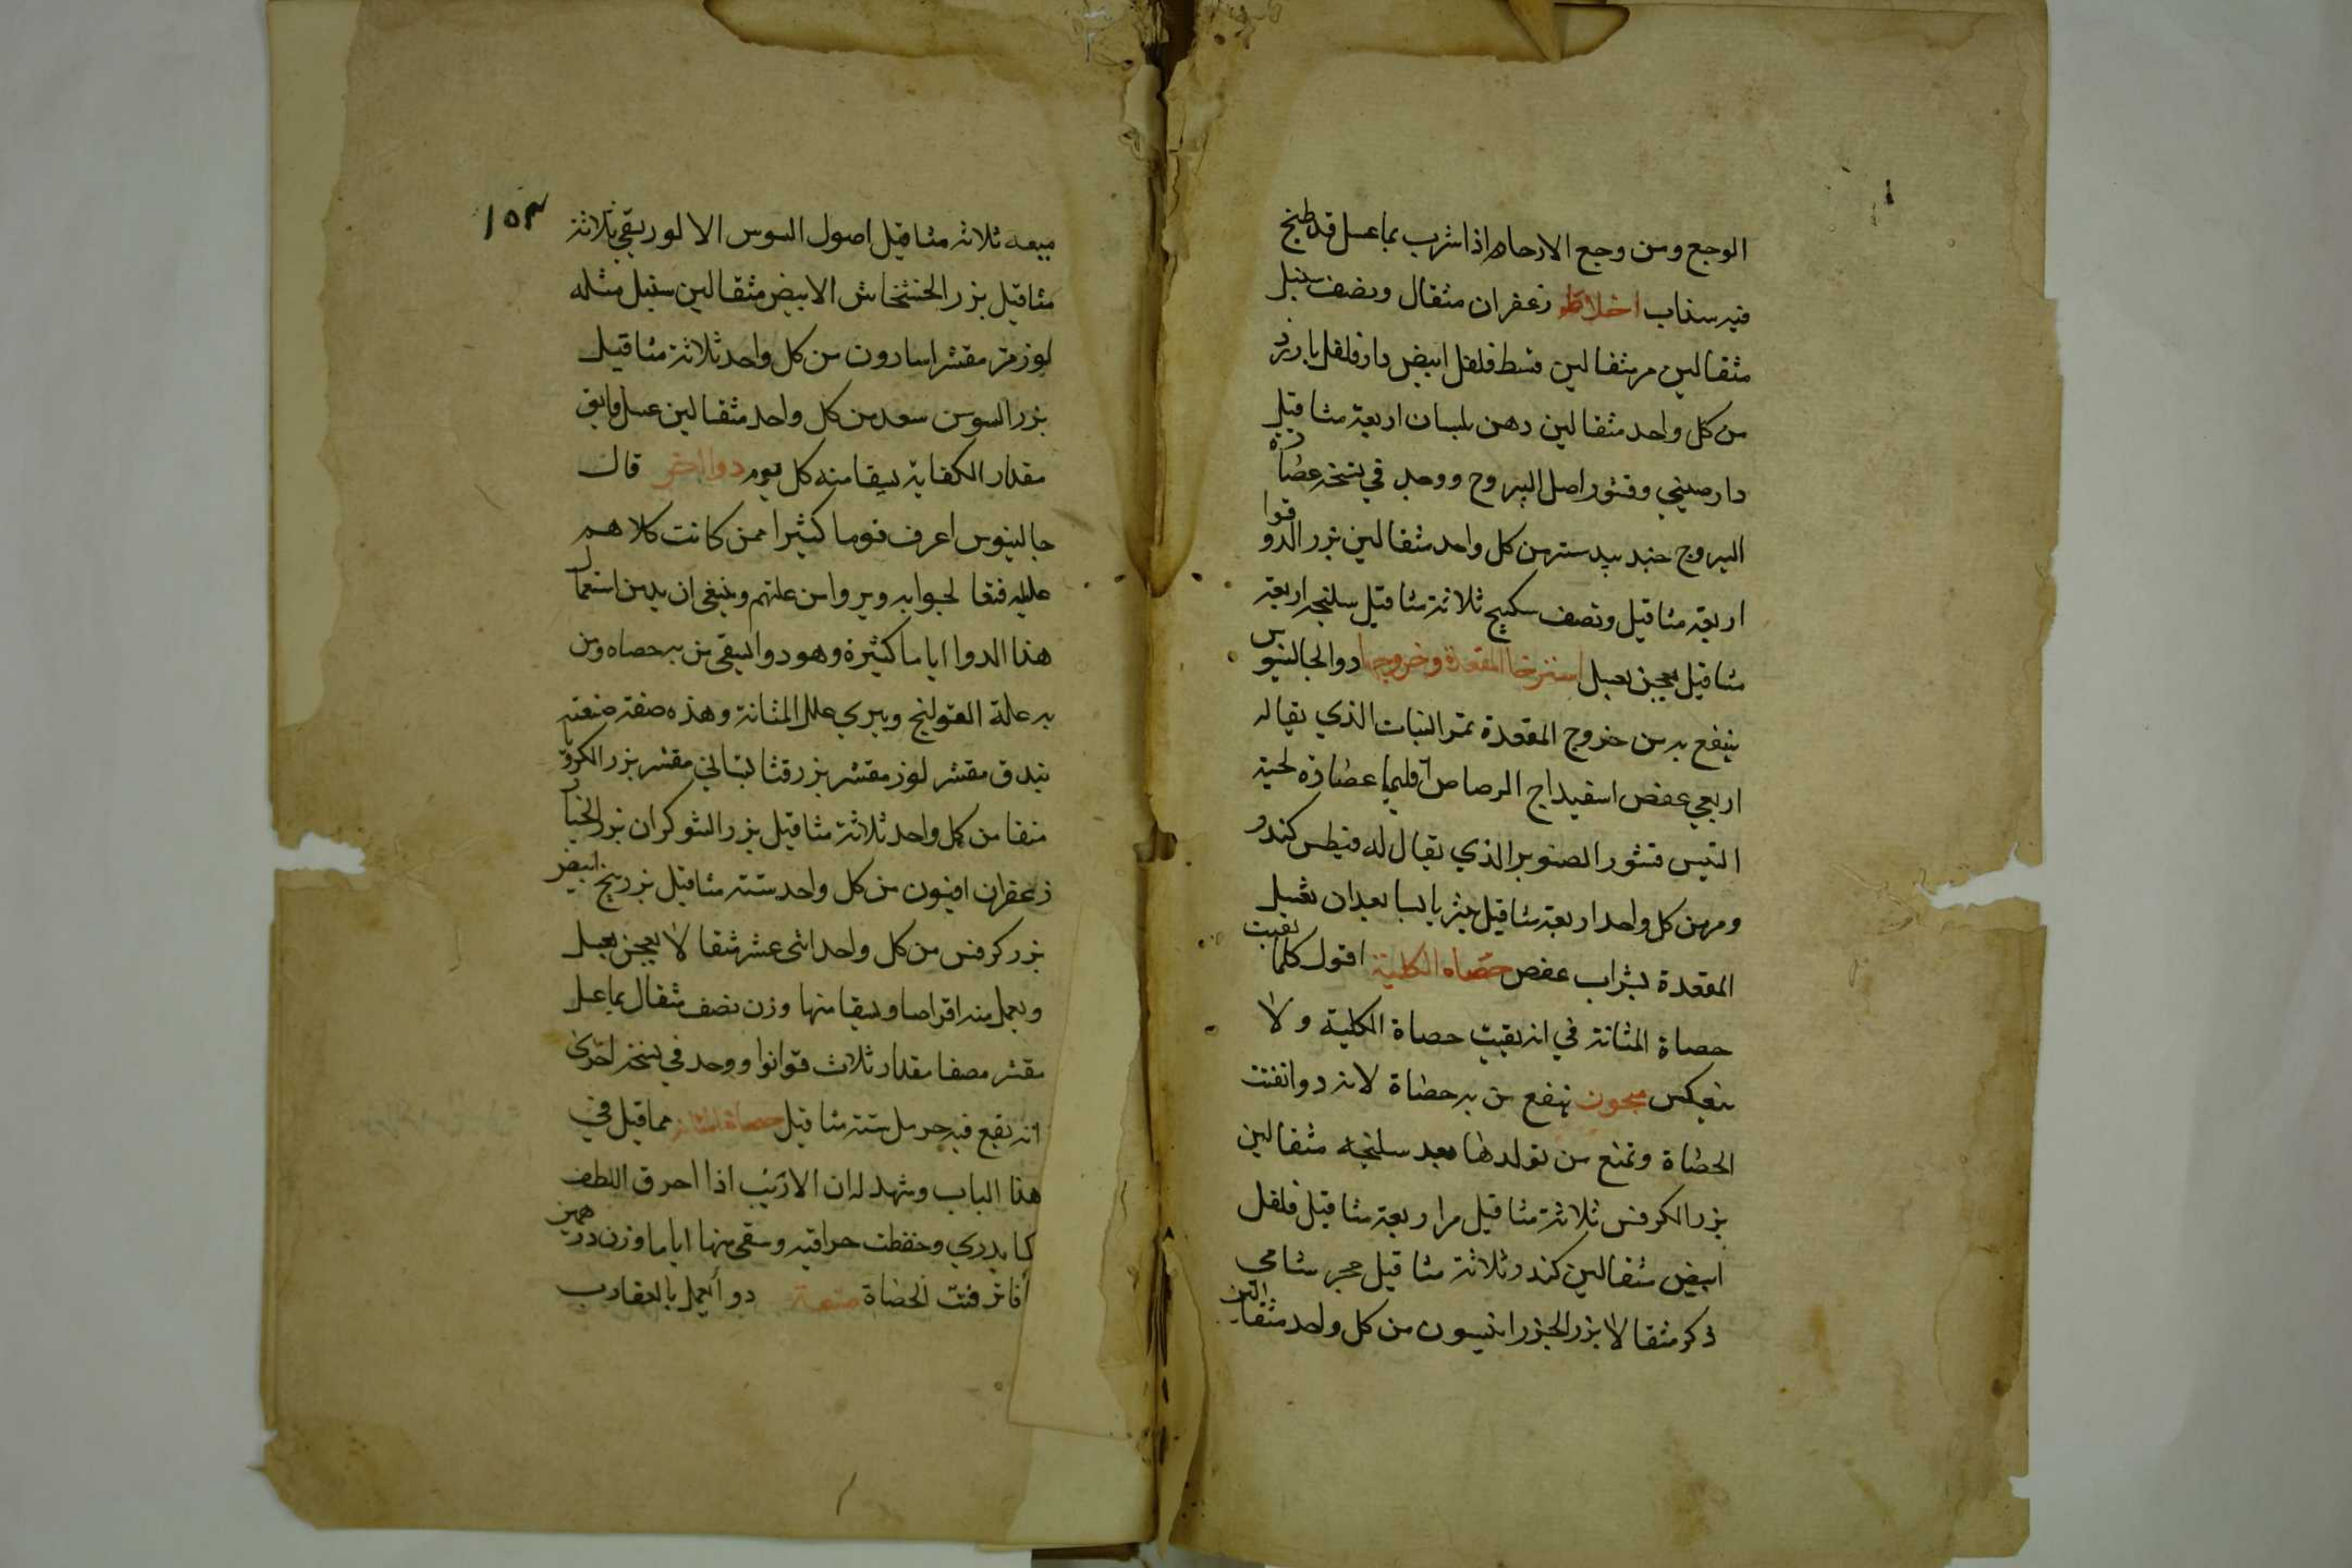 الوجع ومن وجع الارحام اذا شرب بماعسل قد طبخ
فيه سذاب اخلاطه زعفران مثقال ونصف سنبل
مثقالين مر مثقالين قسط فلفل ابيض دارفلفل بارزد
من كل واحد مثقالين دهن بلسان اربعة مثاقيل
دارصيني وقشور اصل اليبروح ووجد في نسخة عصارة
اليبروح جندبيدستر من كل واحد مثقالين بزر الدوقوا
اربعة مثاقيل ونصف سكبينج ثلاثة مثاقيل سليخه اربعة
مثاقيل يعجن بعسل استرخا المقعدة وخروجها دوا لجالينوس
ينفع به من خروج المقعدة ثمر النبات الذي يقال له
اربعي عفص اسفيداج الرصاص اقليميا عصارة لحية
التيس قشور الصنوبر الذي يقال له فيطس كندر
ومر من كل واحد اربعة مثاقيل ينثر يابسا بعد ان تغسل
المقعدة بشراب عفص حصاه الكلية اقول كلما تفتت
حصاة المثانة في انه يفتت حصاة الكلية ولا
ينعكس معجون ينفع من به حصاة لانه دوا تفتت
الحصاة وتمنع من تولدها بعد سليخه مثقالين
بزر الكرفس ثلاثة مثاقيل مر اربعة مثاقيل فلفل
ابيض مثقالين كندر ثلاثة مثاقيل حجر شامي
ذكر مثقالا بزر الجزر انيسون من كل واحد مثقالين
١٥٣
ميعه ثلاثه مثاقيل اصول السوس الا لوريقي ثلاثة
مثاقيل بزر الخشخاش الابيض مثقالين سنبل مثله
لوز مر مقشر اسارون من كل واحد ثلاثة مثاقيل
بزر السوس سعد من كل واحد مثقالين عسل فايق
مقدار الكفاية يسقا منه كل يوم دوا اخر قال
جالينوس اعرف قوما كثيرا ممن كانت كلاهم
عليله فتعالجوا به وبروا من علتهم وينبغي ان يدمن استعمال
هذا الدوا اياما كثيرة وهو دوا يسقى من به حصاه ومن
به علة القولنج ويبري علل المثانة وهذه صفة صنعته
بندق مقشر لوز مقشر بزر قثا بستاني مقشر بزر الكرويا
منقا من كل واحد ثلاثة مثاقيل بزر الشوكران بزر الخيار
زعفران افيون من كل واحد ستة مثاقيل بزر بنج ابيض
بزر كرفس من كل واحد اثنى عشر مثقالا يعجن بعسل
ويعمل منه اقراصا ويسقا منها وزن نصف مثقال بماعسل
مقشر مصفا مقدار ثلاث قوانوا ووجد في نسخة اخرى
انه يقع فيه حرمل ستة مثاقيل حصاة المثانة مما قيل في
هذا الباب وشهد له ان الارنب اذا احرق اللطف
كما يدري وحفظت حراقته وسقي منها اياما وزن درهمين
فتت الحصاة صنعة دوا يعمل بالعقارب